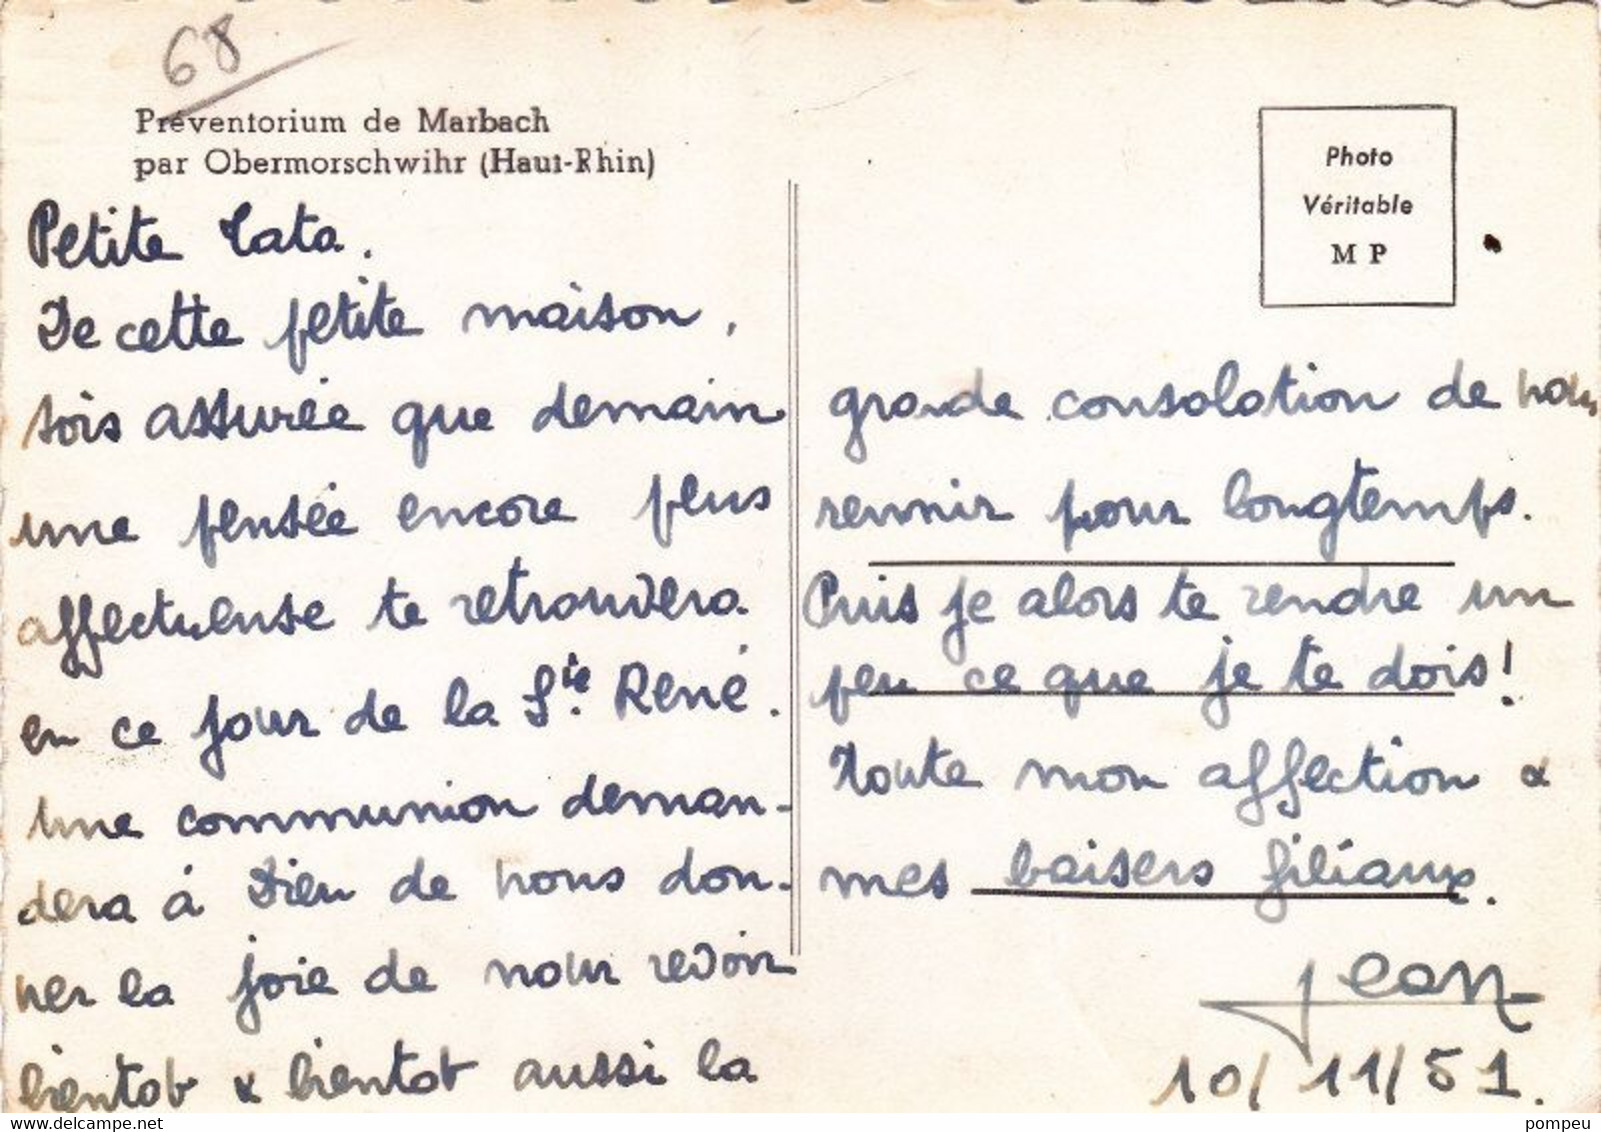 68
Préventorium de Marbach
par Obermorschwihr (Haut-Rhin)
Photo
Véritable
M P
Petite Tata.
De cette petite maison,
sois assurée que demain
une pensée encore plus
affectueuse te retrouvera
en ce jour de la Ste. René.
Une communion deman-
dera à Dieu de nous don-
ner la joie de nous revoir
bientôt & bientôt aussi la
grande consolation de nous
reunir pour longtemps.
Puis je alors te rendre un
peu ce que je te dois!
Toute mon affection &
mes baisers filiaux.
Jean
10/11/51.
www.delcampe.net
pompeu